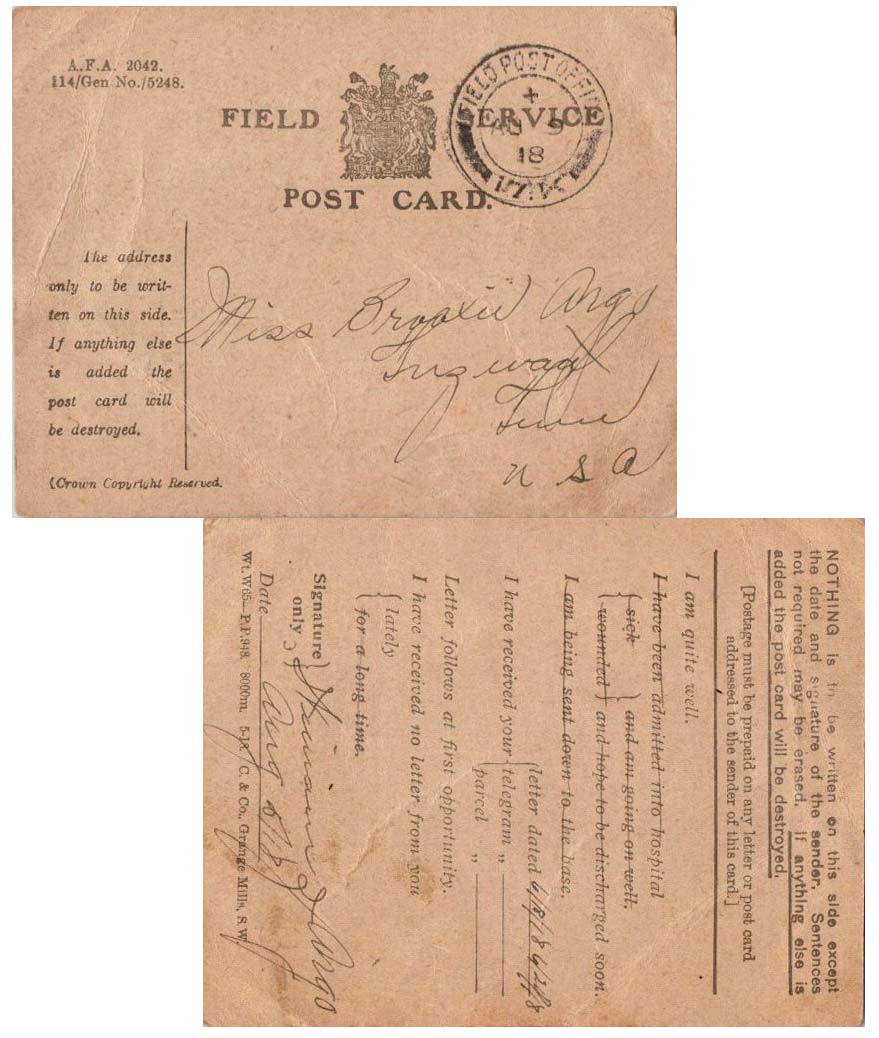 A.F.A. 2042.
114/Gen No./5248.
FIELD SERVICE
POST CARD.
FIELD POST OFFICE
AU 9
18
The address
only to be writ-
ten on this side.
If anything else
is added the
post card will
be destroyed.
(Crown Copyright Reserved.
Miss Argo
Tenn
U S A
NOTHING is to be written on this side except
the date and signature of the sender. Sentences
not required may be erased. If anything else is
added the post card will be destroyed.
[Postage must be prepaid on any letter or post card
addressed to the sender of this card.]
I am quite well.
I have been admitted into hospital
{ sick } and am going on well.
{ wounded } and hope to be discharged soon.
I am being sent down to the base.
I have received your { letter dated
telegram „
parcel „
Letter follows at first opportunity.
I have received no letter from you
{ lately
{ for a long time.
Signature
only } Argo
Date Aug 8/18
Wt. W65—P.P.948. 8000m. 5-18. C. & Co., Grange Mills, S.W.